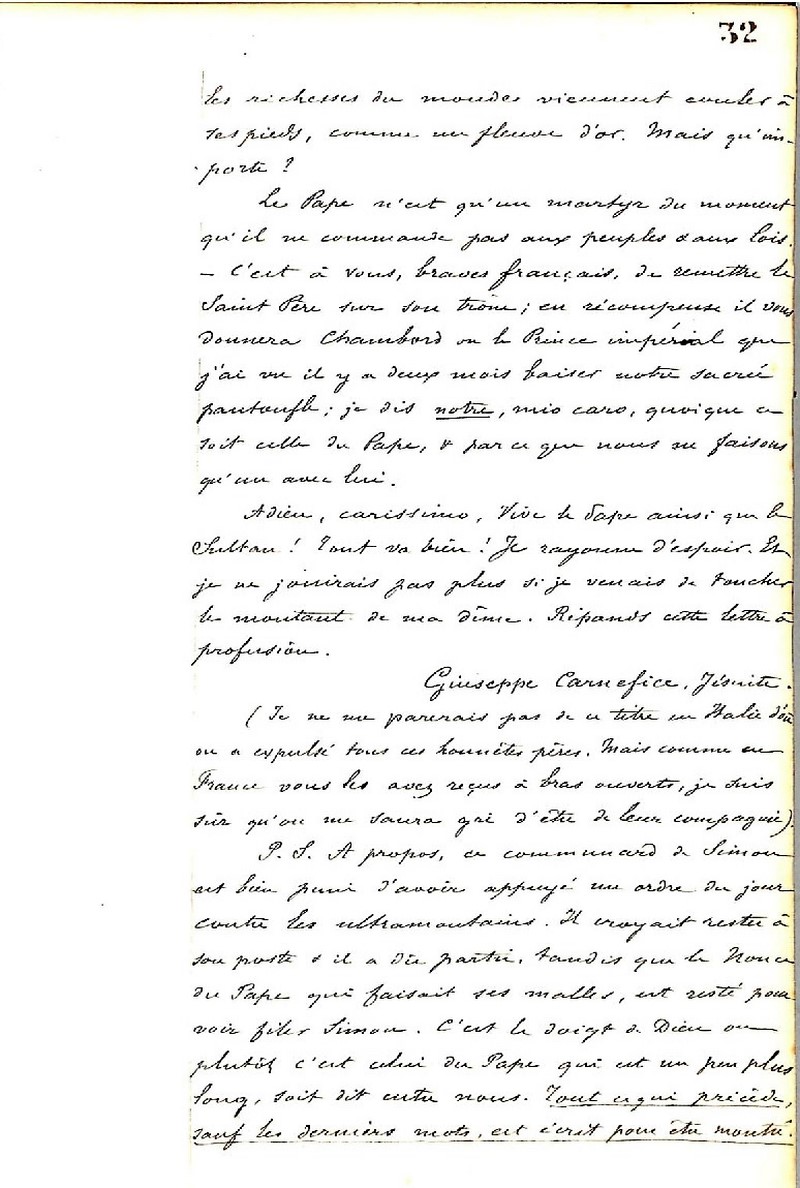 32
les richesses du monde viennent couler à
ses pieds, comme un fleuve d'or. Mais qu'im-
porte ?
Le Pape n'est qu'un martyr du moment
qu'il ne commande pas aux peuples & aux Rois.
— C'est à vous, braves français, de remettre le
Saint Père sur son trône ; en récompense il vous
donnera Chambord ou le Prince impérial que
j'ai vu il y a deux mois baiser notre sacrée
pantoufle ; je dis notre, mio caro, quoique ce
soit celle du Pape, & parce que nous ne faisons
qu'un avec lui.
Adieu, carissimo, Vive le Pape ainsi que le
Sultan ! Tout va bien ! Je rayonne d'espoir. Et
je ne jouirais pas plus si je venais de toucher
le montant de ma dîme. Répands cette lettre à
profusion.
Giuseppe Carnefice, Jésuite.
(Je ne me parerais pas de ce titre en Italie d'où
on a expulsé tous ces honnêtes pères. Mais comme en
France vous les avez reçus à bras ouverts, je suis
sûr qu'on me saura gré d'être de leur compagnie).
P. S. A propos, ce communard de Simon
est bien puni d'avoir appuyé un ordre du jour
contre les ultramontains. Il croyait rester à
son poste & il a dû partir, tandis que le Nonce
du Pape qui faisait ses malles, est resté pour
voir filer Simon. C'est le doigt de Dieu ou
plutôt c'est celui du Pape qui est un peu plus
long, soit dit entre nous. Tout ce qui précède,
sauf les derniers mots, est écrit pour être montré.